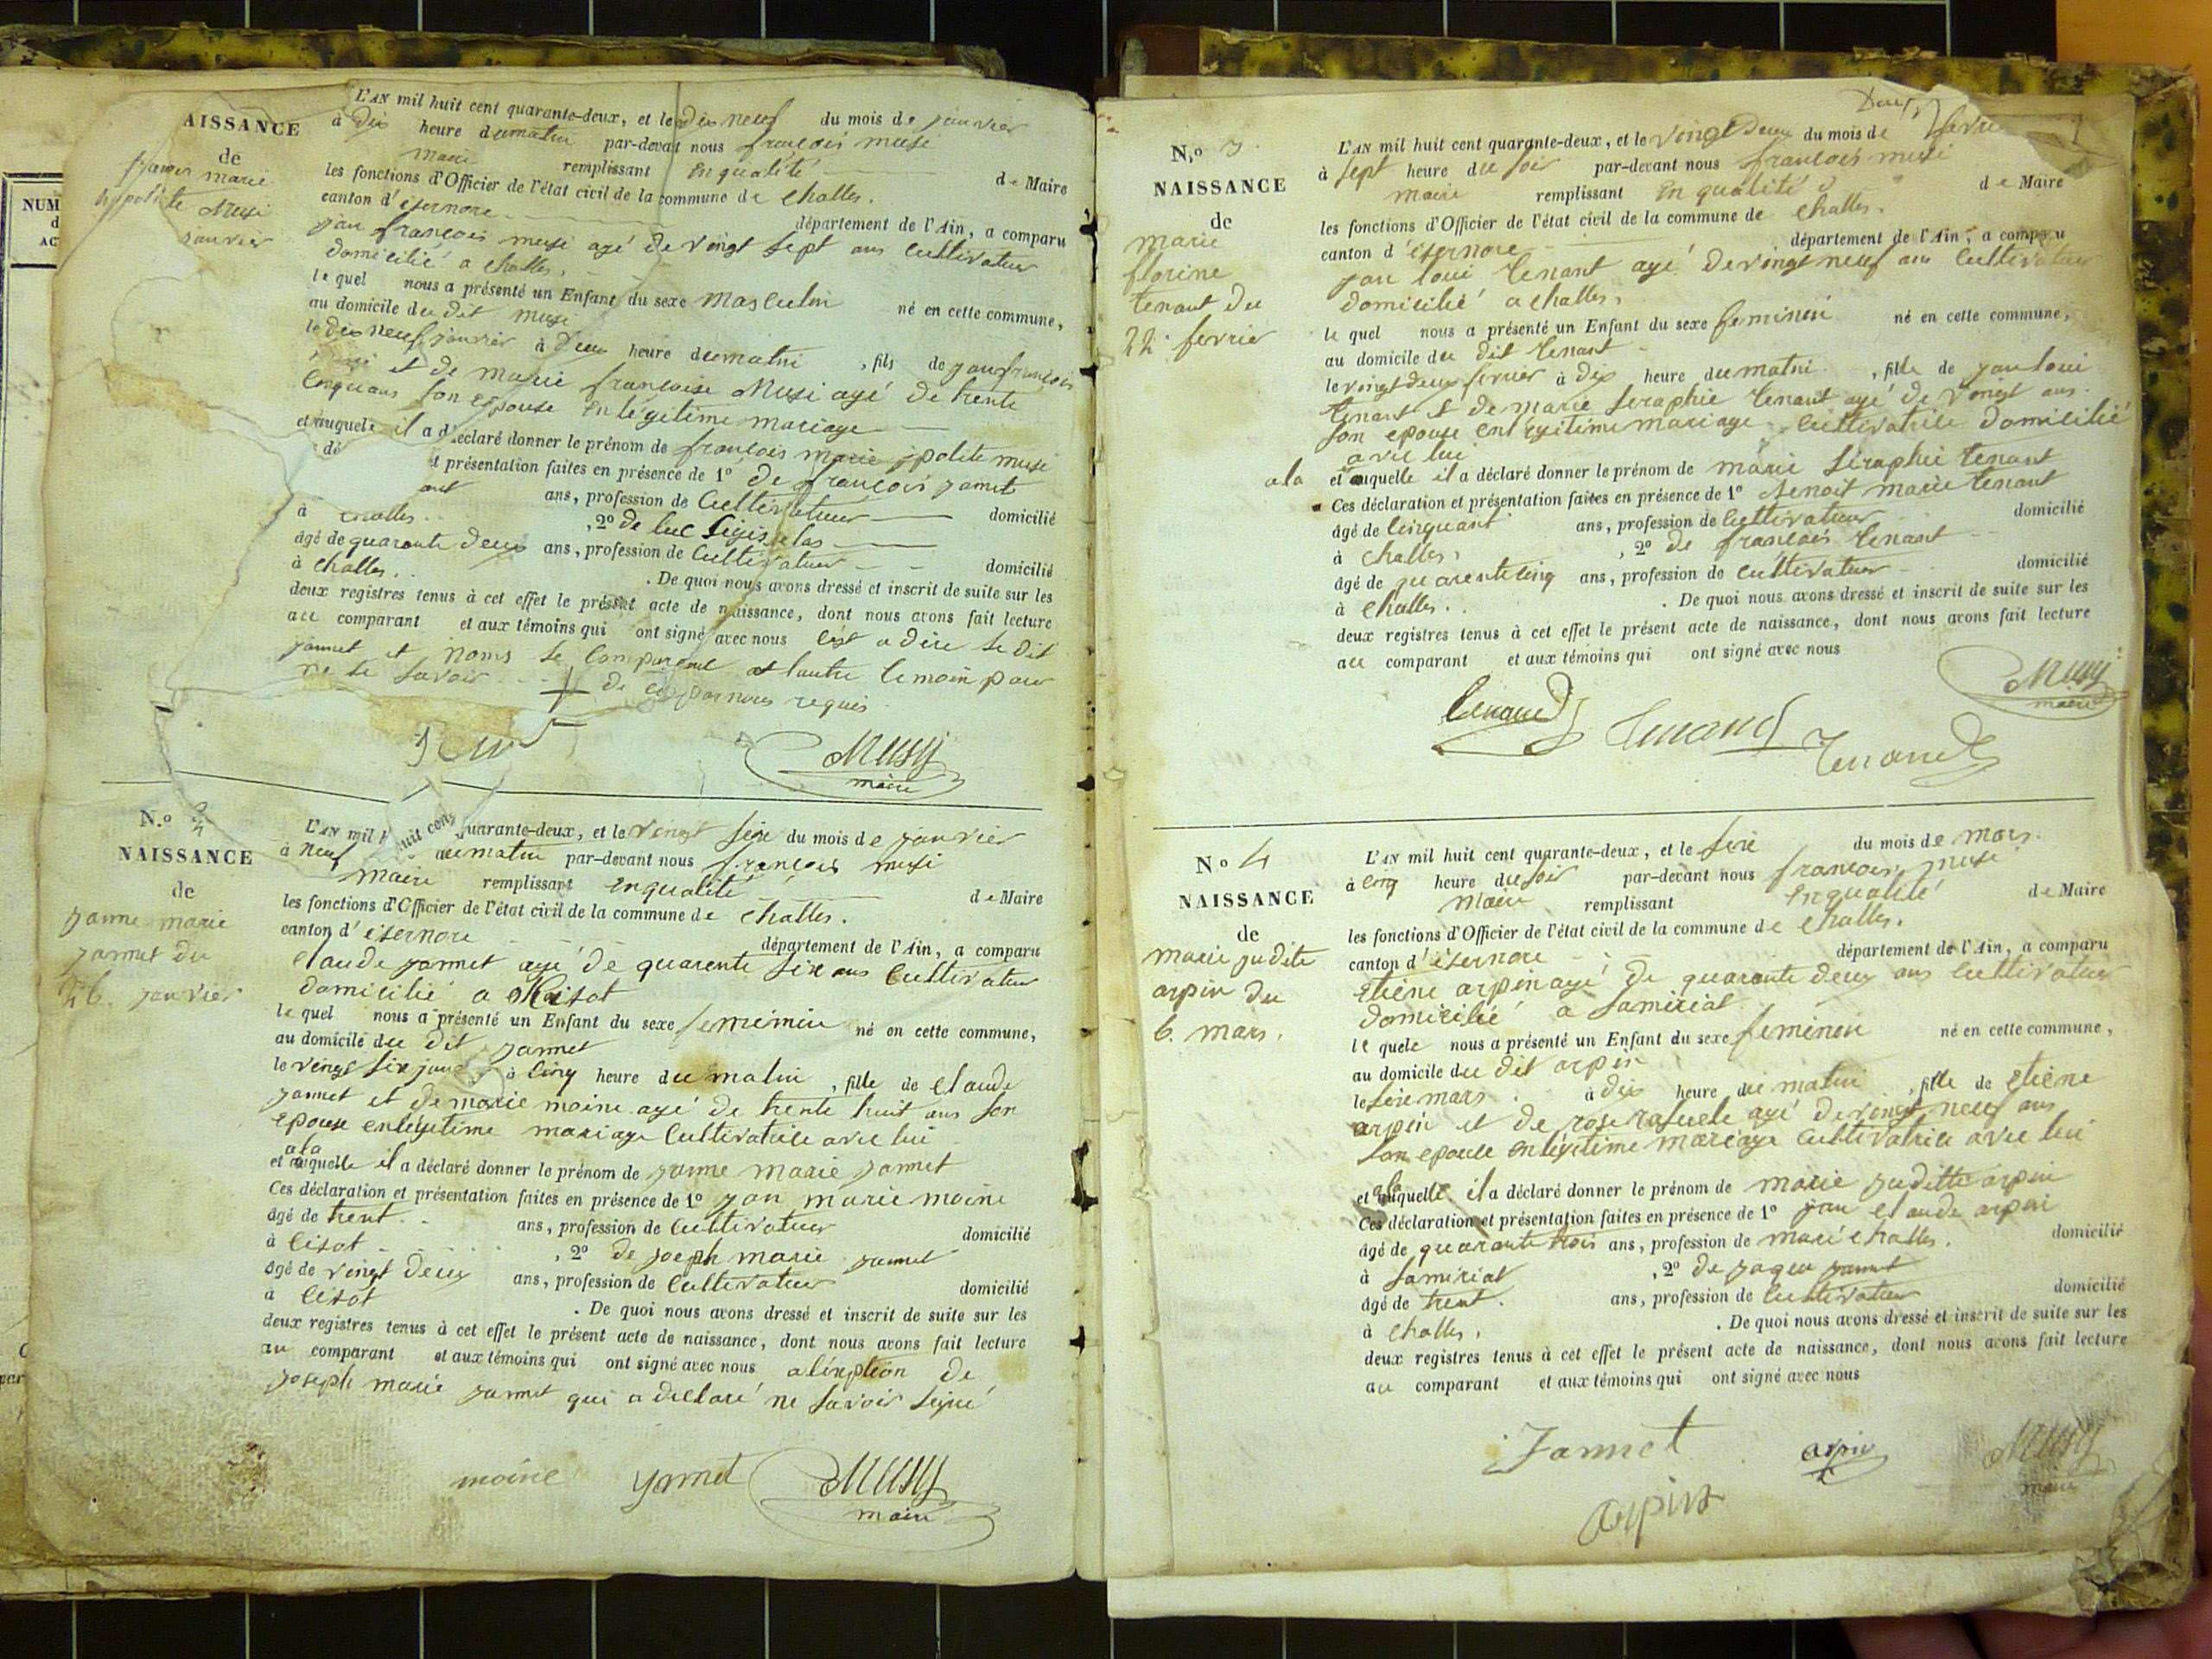 AISSANCE
de
marie
hypolite Musi
janvier
L'AN mil huit cent quarante-deux, et le dix neuf du mois de janvier
à dix heure du matin par-devant nous françois musi
maire remplissant en qualité de Maire
les fonctions d'Officier de l'état civil de la commune de challes.
canton d'isernore département de l'Ain, a comparu
jan françois musi agé de vingt sept ans cultivateur
domicilié a challes.
le quel nous a présenté un Enfant du sexe masculin né en cette commune,
au domicile du dit musi
le dix neuf janvier à deux heure du matin, fils de jan françois
et de marie françoise Musi agé de trente
cinq ans son epouse en legitime mariage
et auquel il a déclaré donner le prénom de françois marie ipolite musi
présentation faites en présence de 1° de françois jamet
ans, profession de cultivateur domicilié
à challes. , 2° de luc
âgé de quarante deux ans, profession de cultivateur domicilié
à challes. . De quoi nous avons dressé et inscrit de suite sur les
deux registres tenus à cet effet le présent acte de naissance, dont nous avons fait lecture
au comparant et aux témoins qui ont signé avec nous c'est a dire le dit
jamet et noms le comparant et lautre temoin pour
ne le savoir de ce par nous requis
Musy
maire
N.o 2
NAISSANCE
de
janne marie
jamet du
26. janvier
L'AN mil huit cent quarante-deux, et le vingt sixe du mois de janvier
à neuf du matin par-devant nous françois musi
maire remplissant en qualité de Maire
les fonctions d'Officier de l'état civil de la commune de challes.
canton d'isernore département de l'Ain, a comparu
claude jamet agé de quarente six ans cultivateur
domicilié a
le quel nous a présenté un Enfant du sexe feminin né en cette commune,
au domicile du dit jamet
le vingt six à cinq heure du matin, fille de claude
jamet et de marie moine agé de trente huit ans son
epouse en legitime mariage cultivatrice avec lui
a la
et auquelle il a déclaré donner le prénom de janne marie jamet
Ces déclaration et présentation faites en présence de 1° jan marie moine
âgé de trent. ans, profession de cultivateur domicilié
à cisot , 2° de joseph marie jamet
âgé de vingt deux ans, profession de cultivateur domicilié
à cisot . De quoi nous avons dressé et inscrit de suite sur les
deux registres tenus à cet effet le présent acte de naissance, dont nous avons fait lecture
au comparant et aux témoins qui ont signé avec nous a l'exption de
joseph marie jamet qui a declaré ne savoir signé
moine jamet Musy
maire
N.o 3
NAISSANCE
de
marie
florine
tenant du
22. fevrier
L'AN mil huit cent quarante-deux, et le vingt deux du mois de
à sept heure du soir par-devant nous françois musi
maire remplissant en qualité de Maire
les fonctions d'Officier de l'état civil de la commune de challes.
canton d'isernore département de l'Ain, a comparu
jan loui tenant agé de vingt neuf ans cultivateur
domicilié a challes.
le quel nous a présenté un Enfant du sexe feminin né en cette commune,
au domicile du dit tenant
le vingt deux fevrier à dix heure du matin, fille de jan loui
tenant et de marie seraphie tenant agé de vingt ans.
son epouse en legitime mariage cultivatrice domicilié
avec lui
a la et auquelle il a déclaré donner le prénom de marie seraphie tenant
Ces déclaration et présentation faites en présence de 1° benoit marie tenant
âgé de cinquant ans, profession de cultivateur domicilié
à challes. , 2° de françois tenant
âgé de quarente cinq ans, profession de cultivateur domicilié
à challes. . De quoi nous avons dressé et inscrit de suite sur les
deux registres tenus à cet effet le présent acte de naissance, dont nous avons fait lecture
au comparant et aux témoins qui ont signé avec nous
Musy
maire
Tenand Tenand Tenand
N.o 4
NAISSANCE
de
marie judite
arpin du
6. mars.
L'AN mil huit cent quarante-deux, et le sixe du mois de mars.
à cinq heure du soir par-devant nous françois musi
maire remplissant en qualité de Maire
les fonctions d'Officier de l'état civil de la commune de challes.
canton d'isernore département de l'Ain, a comparu
etiene arpin agé de quarante deux ans cultivateur
domicilié a samiriat
le quele nous a présenté un Enfant du sexe feminin né en cette commune,
au domicile du dit arpin
le sixe mars. à dix heure du matin, fille de etiene
arpin et de rose agé de vingt neuf ans
son epouse en legitime mariage cultivatrice avec lui
et auquelle il a déclaré donner le prénom de marie juditte arpin
Ces déclaration et présentation faites en présence de 1° jan claude arpin
âgé de quarante trois ans, profession de maréchalles. domicilié
à samiriat , 2° de jaque jamet
âgé de trent. ans, profession de cultivateur domicilié
à challes. . De quoi nous avons dressé et inscrit de suite sur les
deux registres tenus à cet effet le présent acte de naissance, dont nous avons fait lecture
au comparant et aux témoins qui ont signé avec nous
Jamet arpin Musy
maire
arpin